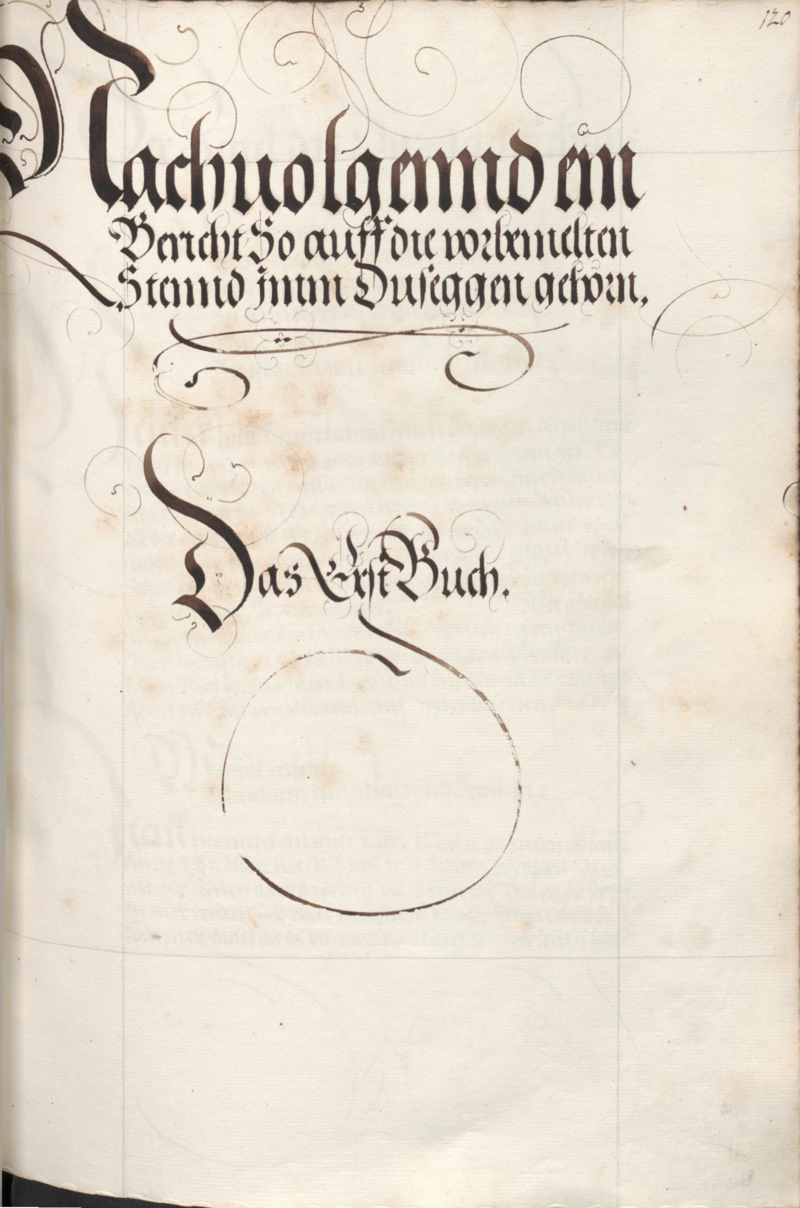 120
Nachuolgennd ein
Bericht So auff die vorbemelten
Stennd jnnn Duseggen gehorn.
Das Erst Buch.